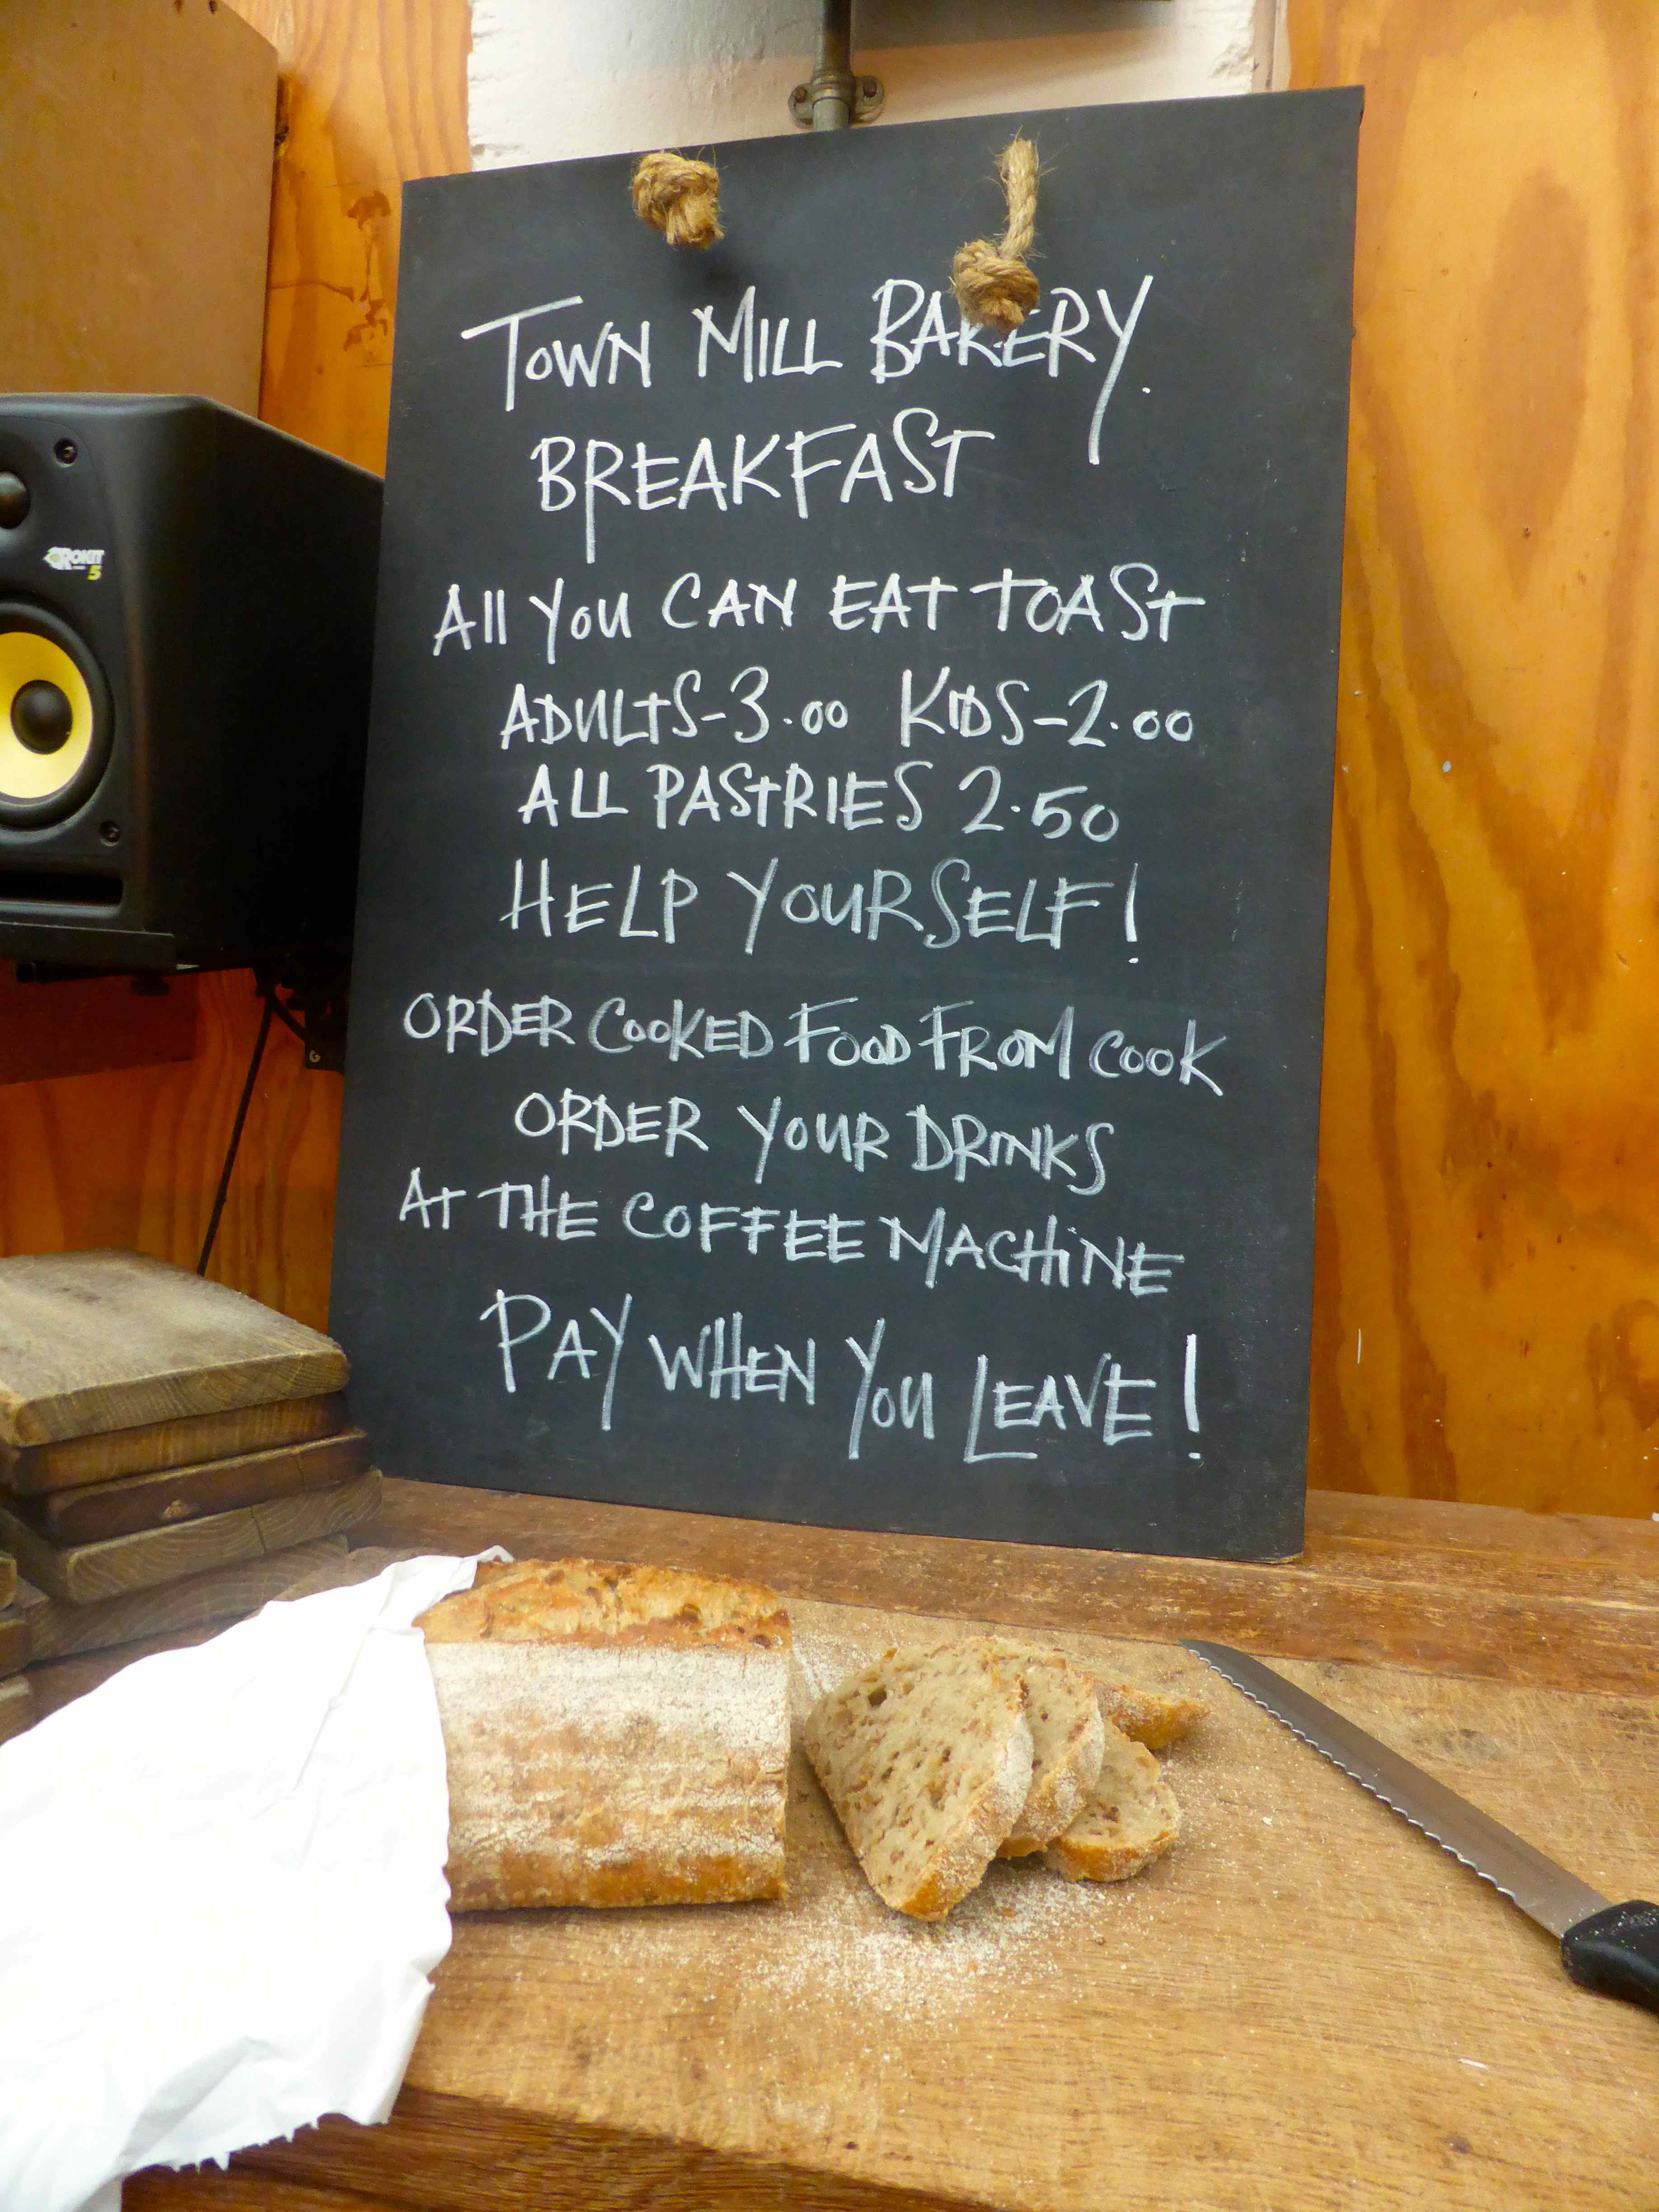 TOWN MILL BAKERY.
BREAKFAST
All You CAN EAT TOAST
ADULTS-3.00 KIDS-2.00
ALL PASTRIES 2.50
HELP YOURSELF!
ORDER COOKED FOOD FROM COOK
ORDER YOUR DRINKS
AT THE COFFEE MACHINE
PAY WHEN YOU LEAVE!
ROKIT
5